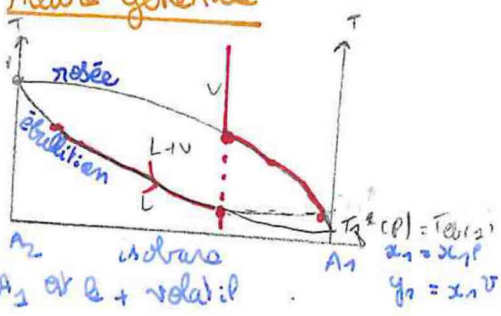 Allure générale
T
T
rosée
V
ébullition
L+V
L
A2
isobare
A1
x1 = x1l
A1 est le + volatil
y1 = x1v